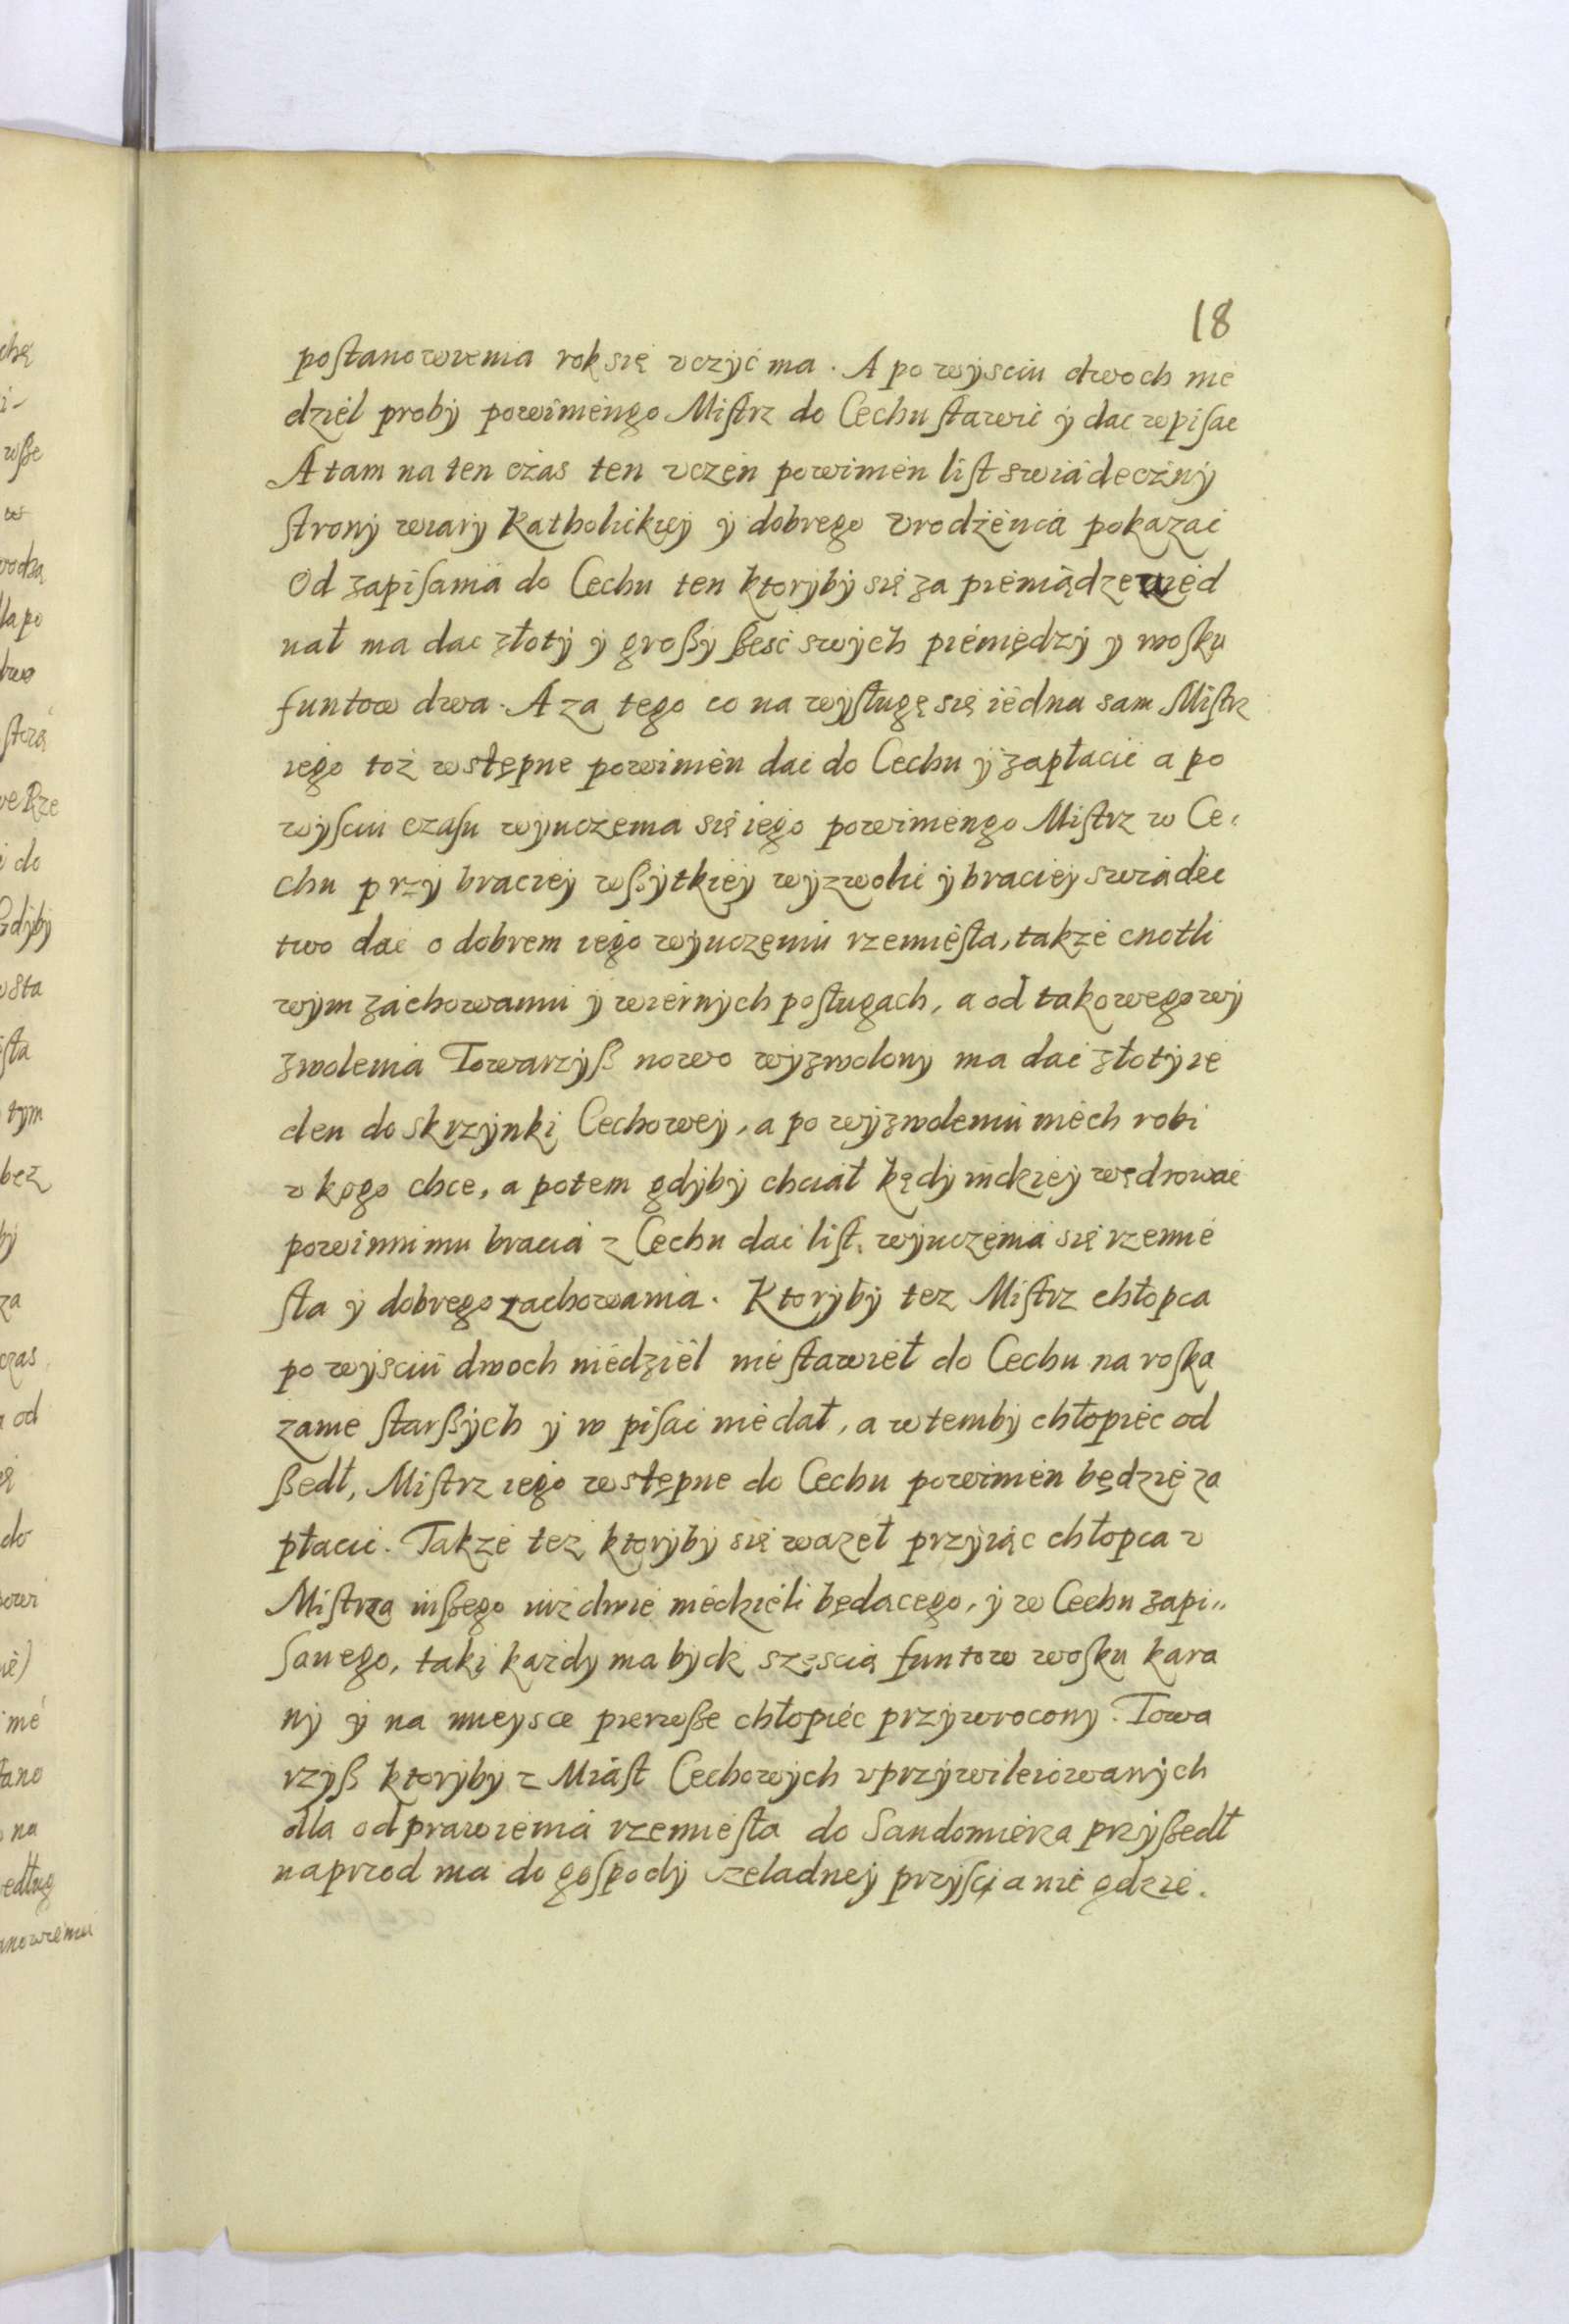 18
postanowienia rok się vczyć ma. A po wysciu dwoch nie
dziel proby powinien go Mistrz do Cechu stawić y dac wpisac
A tam na ten czas ten vczen powinien list swiadeczny
strony wiary Katholickiey y dobrego vrodzenia pokazac
Od zapisania do Cechu ten ktoryby się za pieniądze wied
nał ma dac złoty y großy ßesc swych pieniędzy y wosku
funtow dwa. A za tego co na wysługę się iedna sam Mistrz
iego toz wstępne powinien dac do Cechu y zapłacic a po
wysciu czasu wyuczenia się iego powinien go Mistrz w Ce-
chu przy braciey wßytkiey wyzwolic y braciey swiadec
two dac o dobrem iego wyuczeniu rzemiesła, takze cnotli
wym zachowaniu y wiernych posługach, a od takowego wy
zwolenia Towarzyß nowo wyzwolony ma dac złoty ie
den do skrzynki Cechowey, a po wyzwoleniu niech robi
v kogo chce, a potem gdyby chciał kędy indziey wędrowac
powinni mu bracia z Cechu dac list wyuczenia się rzemie
sła y dobrego zachowania. Ktoryby tez Mistrz chłopca
po wysciu dwoch niedziel nie stawieł do Cechu na roska
zanie starßych y w pisac nie dał, a wtemby chłopiec od
ßedł, Mistrz iego wstępne do Cechu powinien będzie za
płacic. Takze tez ktoryby się wazeł przyiąc chłopca v
Mistrza inßego niz dwie niedzieli będacego, y w Cechu zapi„
sanego, taki kazdy ma bydz szęscią funtow wosku kara
ny y na mieysce pierwße chłopiec przywrocony. Towa
rzyß ktoryby z Miast Cechowych vprzywileiowanych
dla odprawienia rzemiesła do Sandomierza przyßedł
naprzod ma do gospody czeladney przysci a nie gdzie.